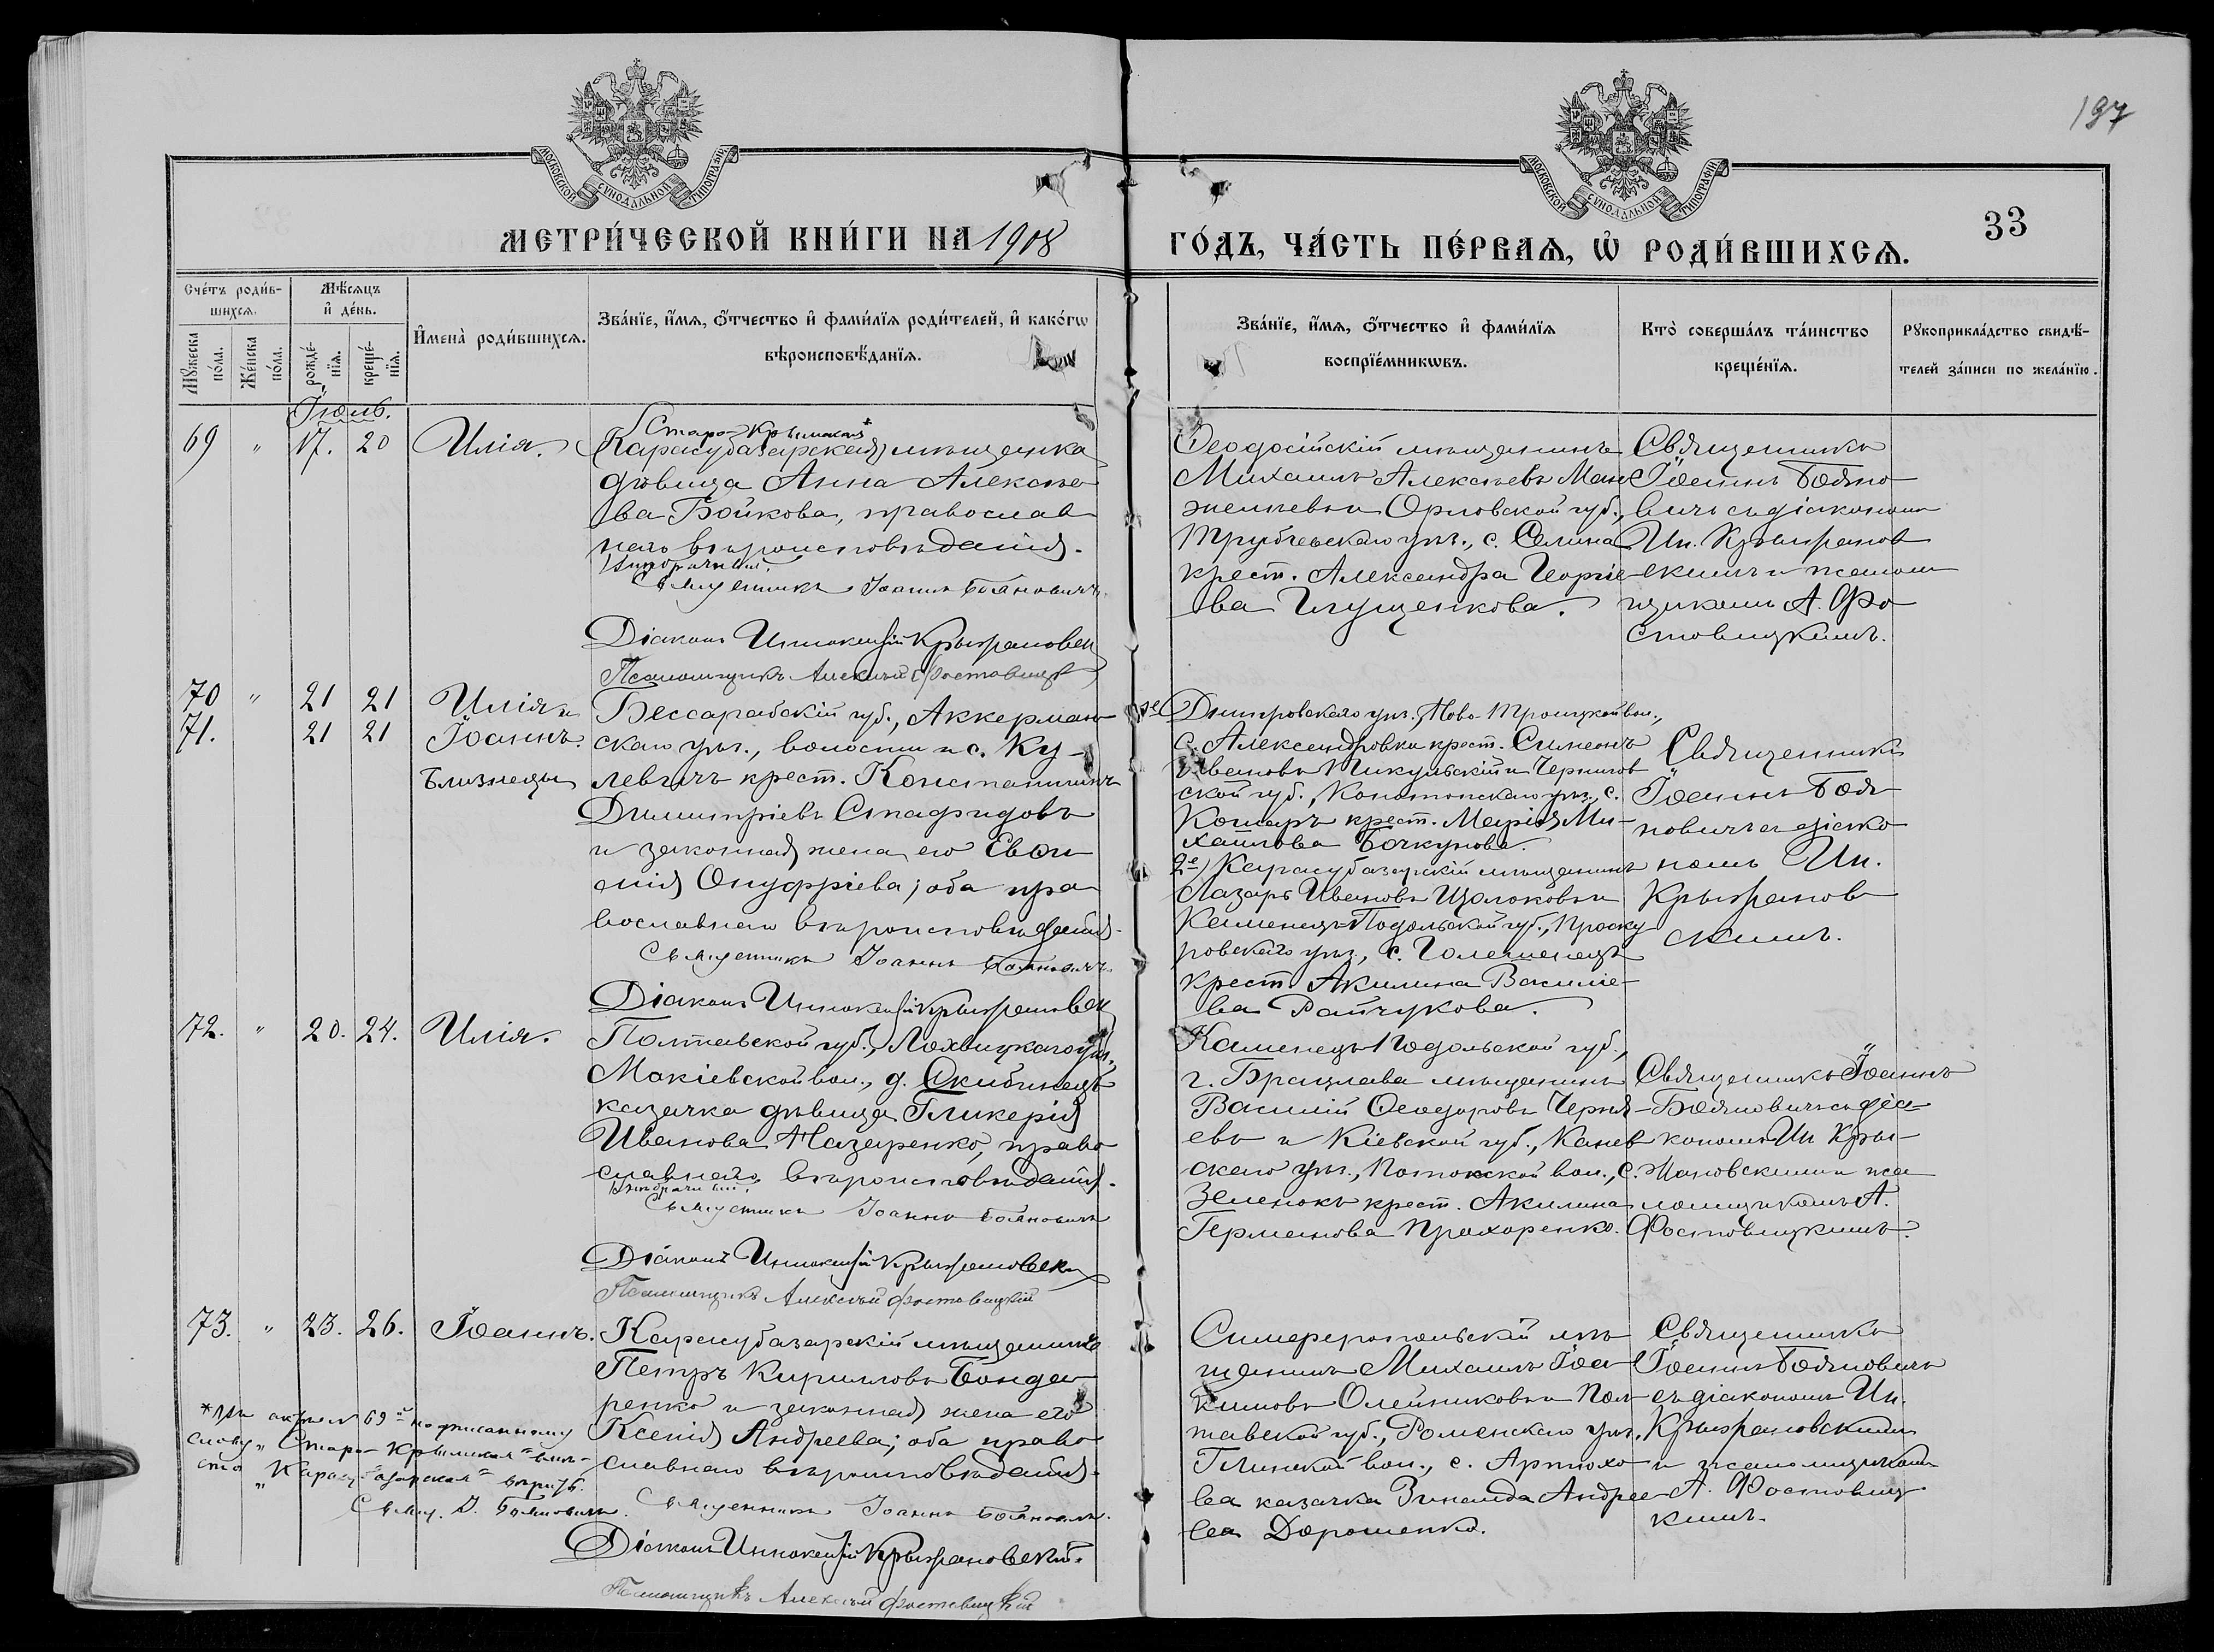 197
33
МОСКОВСКОЙ СУНОДАЛЬНОЙ ТИПОГРАФІИ
МОСКОВСКОЙ СУНОДАЛЬНОЙ ТИПОГРАФІИ
МЕТРИ́ЧЕСКОЙ КНИ́ГИ НА 1908
ГО́ДЪ, ЧА́СТЬ ПЕ́РВАѦ, Ѡ҆ РОДИ́ВШИХСѦ.
Сче́тъ роди́в-
шихсѧ.
Мꙋ́жеска по́ла.
Же́нска по́ла.
Мѣ́сѧцъ
и҆ де́нь.
рожде́-нїѧ.
креще́-нїѧ.
И҆мена̀ роди́вшихсѧ.
Зва́нїе, и҆́мѧ, ѻ҆́тчество и҆ фами́лїѧ роди́телей, и҆ како́гѡ
вѣроисповѣ́данїѧ.
Зва́нїе, и҆́мѧ, ѻ҆́тчество и҆ фами́лїѧ
воспрїе́мникѡвъ.
Кто̀ соверша́лъ та́инство
креще́нїѧ.
Рꙋкоприкла́дство свидѣ́-
телей за́писи по жела́нїю.
Іюль.
69 " 17. 20 Илія.
Старо-Крымская*
Карасубазарская мѣщанка
дѣвица Анна Алексѣе
ва Бойкова, православ
наго вѣроисповѣданія.
Священникъ Іоаннъ Бояновичъ
Діаконъ Иннокентій Крыжановск
Псаломщикъ Алексѣй Фостовицк
Ѳеодосійскій мѣщанинъ
Михаилъ Алексѣевъ Ман
женкевъ и Орловской губ.,
Трубчевскаго уѣз., с. Селина
крест. Александра Георгіе
ва Глущенкова.
Священникъ
Іоаннъ Бояно
вичъ съ діакономъ
Ин. Крыжанов
скимъ и псалом
щикомъ А. Фо
стовицкимъ.
70 " 21 21 Илія и
71. 21 21 Іоаннъ.
Близнецы
Бессарабскій губ., Аккерман
скаго уѣз., волости и с. Ку-
левчъ крест. Константинъ
Димитріевъ Стафидовъ
и законная жена его Евѳи
мія Онуфріева; оба пра
вославнаго вѣроисповѣданія.
Священникъ Іоаннъ Бояновичъ
Діаконъ Иннокентій Крыжановск
Днѣпровскаго уѣз., Ново-Троицкой вол.,
с. Александровки крест. Симеонъ
Ивановъ Никульскій и Чернигов
ской губ., Конотопскаго уѣз., с.
Кошаръ крест. Марія Ми-
хайлова Бочкунова.
2е/ Карасубазарскій мѣщанинъ
Лазарь Ивановъ Щолоковъ и
Каменецъ-Подольской губ., Проску
ровскаго уѣз., с. Голешенецъ
крест. Акилина Василіе-
ва Райчукова.
Священникъ
Іоаннъ Боя
новичъ съ діако
номъ Ин.
Крыжанов
скимъ.
72. " 20. 24. Илія.
Полтавской губ., Лохвицкаго уѣз.
Макіевской вол., д. Скибинецъ
казачка дѣвица Гликерія
Иванова Назаренко, право
славнаго вѣроисповѣданія.
Священникъ Іоаннъ Бояновичъ
Діаконъ Иннокентій Крыжановск
Псаломщикъ Алексѣй Фостовицкій
Каменецъ-Подольской губ.,
г. Брацлава мѣщанинъ
Василій Ѳеодоровъ Черня-
евъ и Кіевской губ., Канев
скаго уѣз., Потокской вол., с.
Зеленокъ крест. Акилина
Германова Прохоренко.
Священникъ Іоаннъ
Бояновичъ съ діа
кономъ Ин Кры-
жановскимъ и пса
ломщикомъ А.
Фостовицкимъ.
73. " 23. 26. Іоаннъ.
Карасубазарскій мѣщанинъ
Петръ Кирилловъ Бонда
ренко и законная жена его
Ксенія Андреева; оба право
славнаго вѣроисповѣданія.
Священникъ Іоаннъ Бояновичъ.
Діаконъ Иннокентій Крыжановскій.
Псаломщикъ Алексѣй Фостовицкій
Симферопольскій мѣ
щанинъ Михаилъ Іоа
кимовъ Олейниковъ и Пол
тавской губ., Роменскаго уѣз.,
Глинской вол., с. Артюхо
ва казачка Зинаида Андрее
ва Дорошенко.
Священникъ
Іоаннъ Бояновичъ
съ діакономъ Ин.
Крыжановскимъ
и псаломщикомъ
А. Фостовиц
кимъ.
*при актѣ № 69 надписанному
слову "Старо-Крымская" вмѣ-
сто "Карасубазарская" вѣрить.
Свящ. І. Бояновичъ.